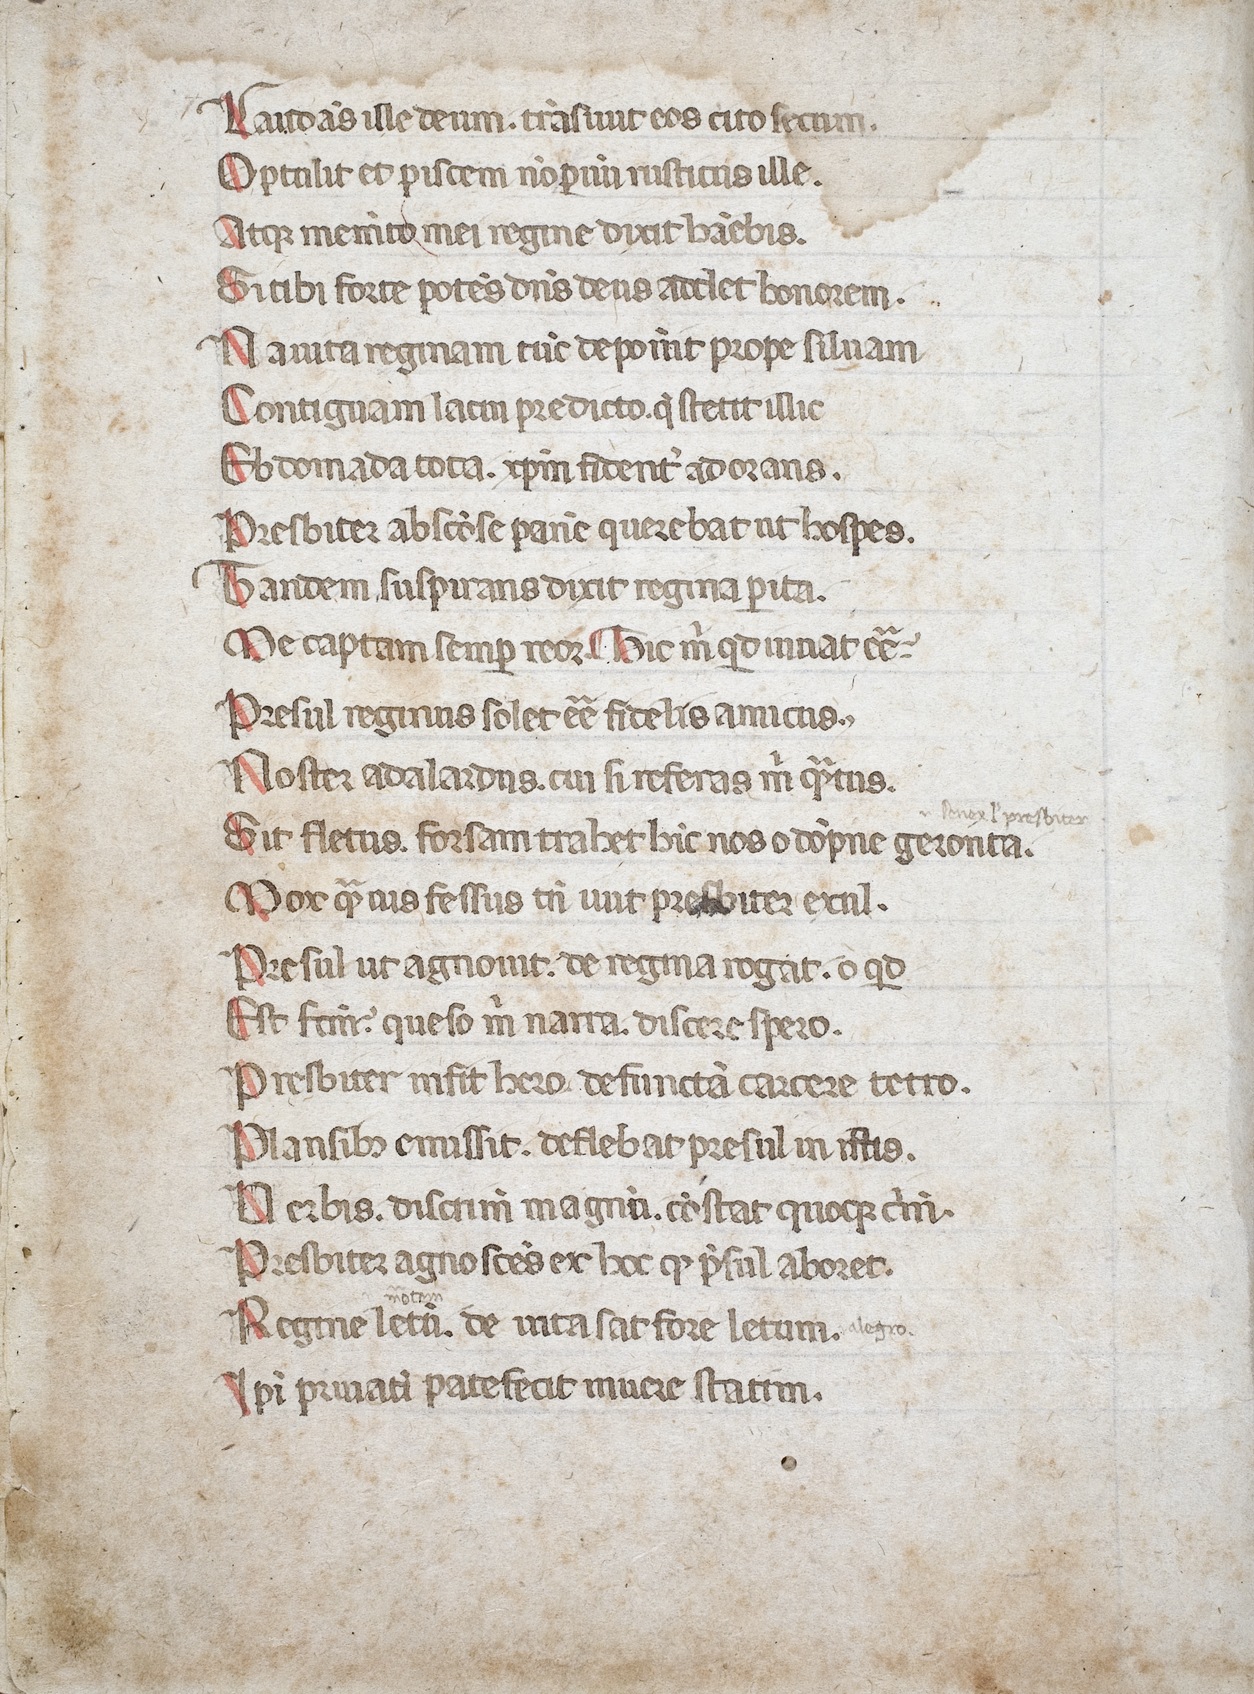 Laudās ille deum. trāsiuit eos cito secum.
Optulit et piscem nō paruū rusticus ille.
Atq; memīto mei regine dixit hāebis.
Si tibi forte potēs dn̄s deus adclet honorem.
Nauita reginam tūc depoīnt prope siluam
Contiguam lacui predicto. q̇ stetit illic
Ebdomada tota. xp̄m fident᷑ adorans.
Presbiter abscōse panē querebat ut hospes.
Tandem suspirans dixit regina perita.
Me captam semp reor. Hic m̊ qd iuuat eē.
Presul reginus solet eē fidelis amicus.
Noster adalardus. cui si referas m̊ q̄tus.
senex l' presbiter
Sit fletus. forsam trahet hic nos o dōpne geronta.
Mox q̄tus fessus tn̄ iuit presbiter exul.
Presul ut agnouit. de regina rogat. o qd
Est fcm̄. queso m̊ narra. discere spero.
Presbiter infit hero defunctā carcere tetro.
Plausib; emissit. deflebat presul in istis.
Verbis. discrim̄ magnū. cōstat quoq; crīm.
Presbiter agnoscēs ex hoc q p̄sul aboret.
motam
Regine letū. de uita sat fore letum. alegro.
Ipi priuati patefecit iuuere statim.